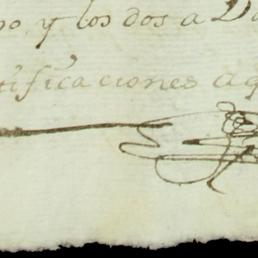 po y los dos a D
tificaciones aq